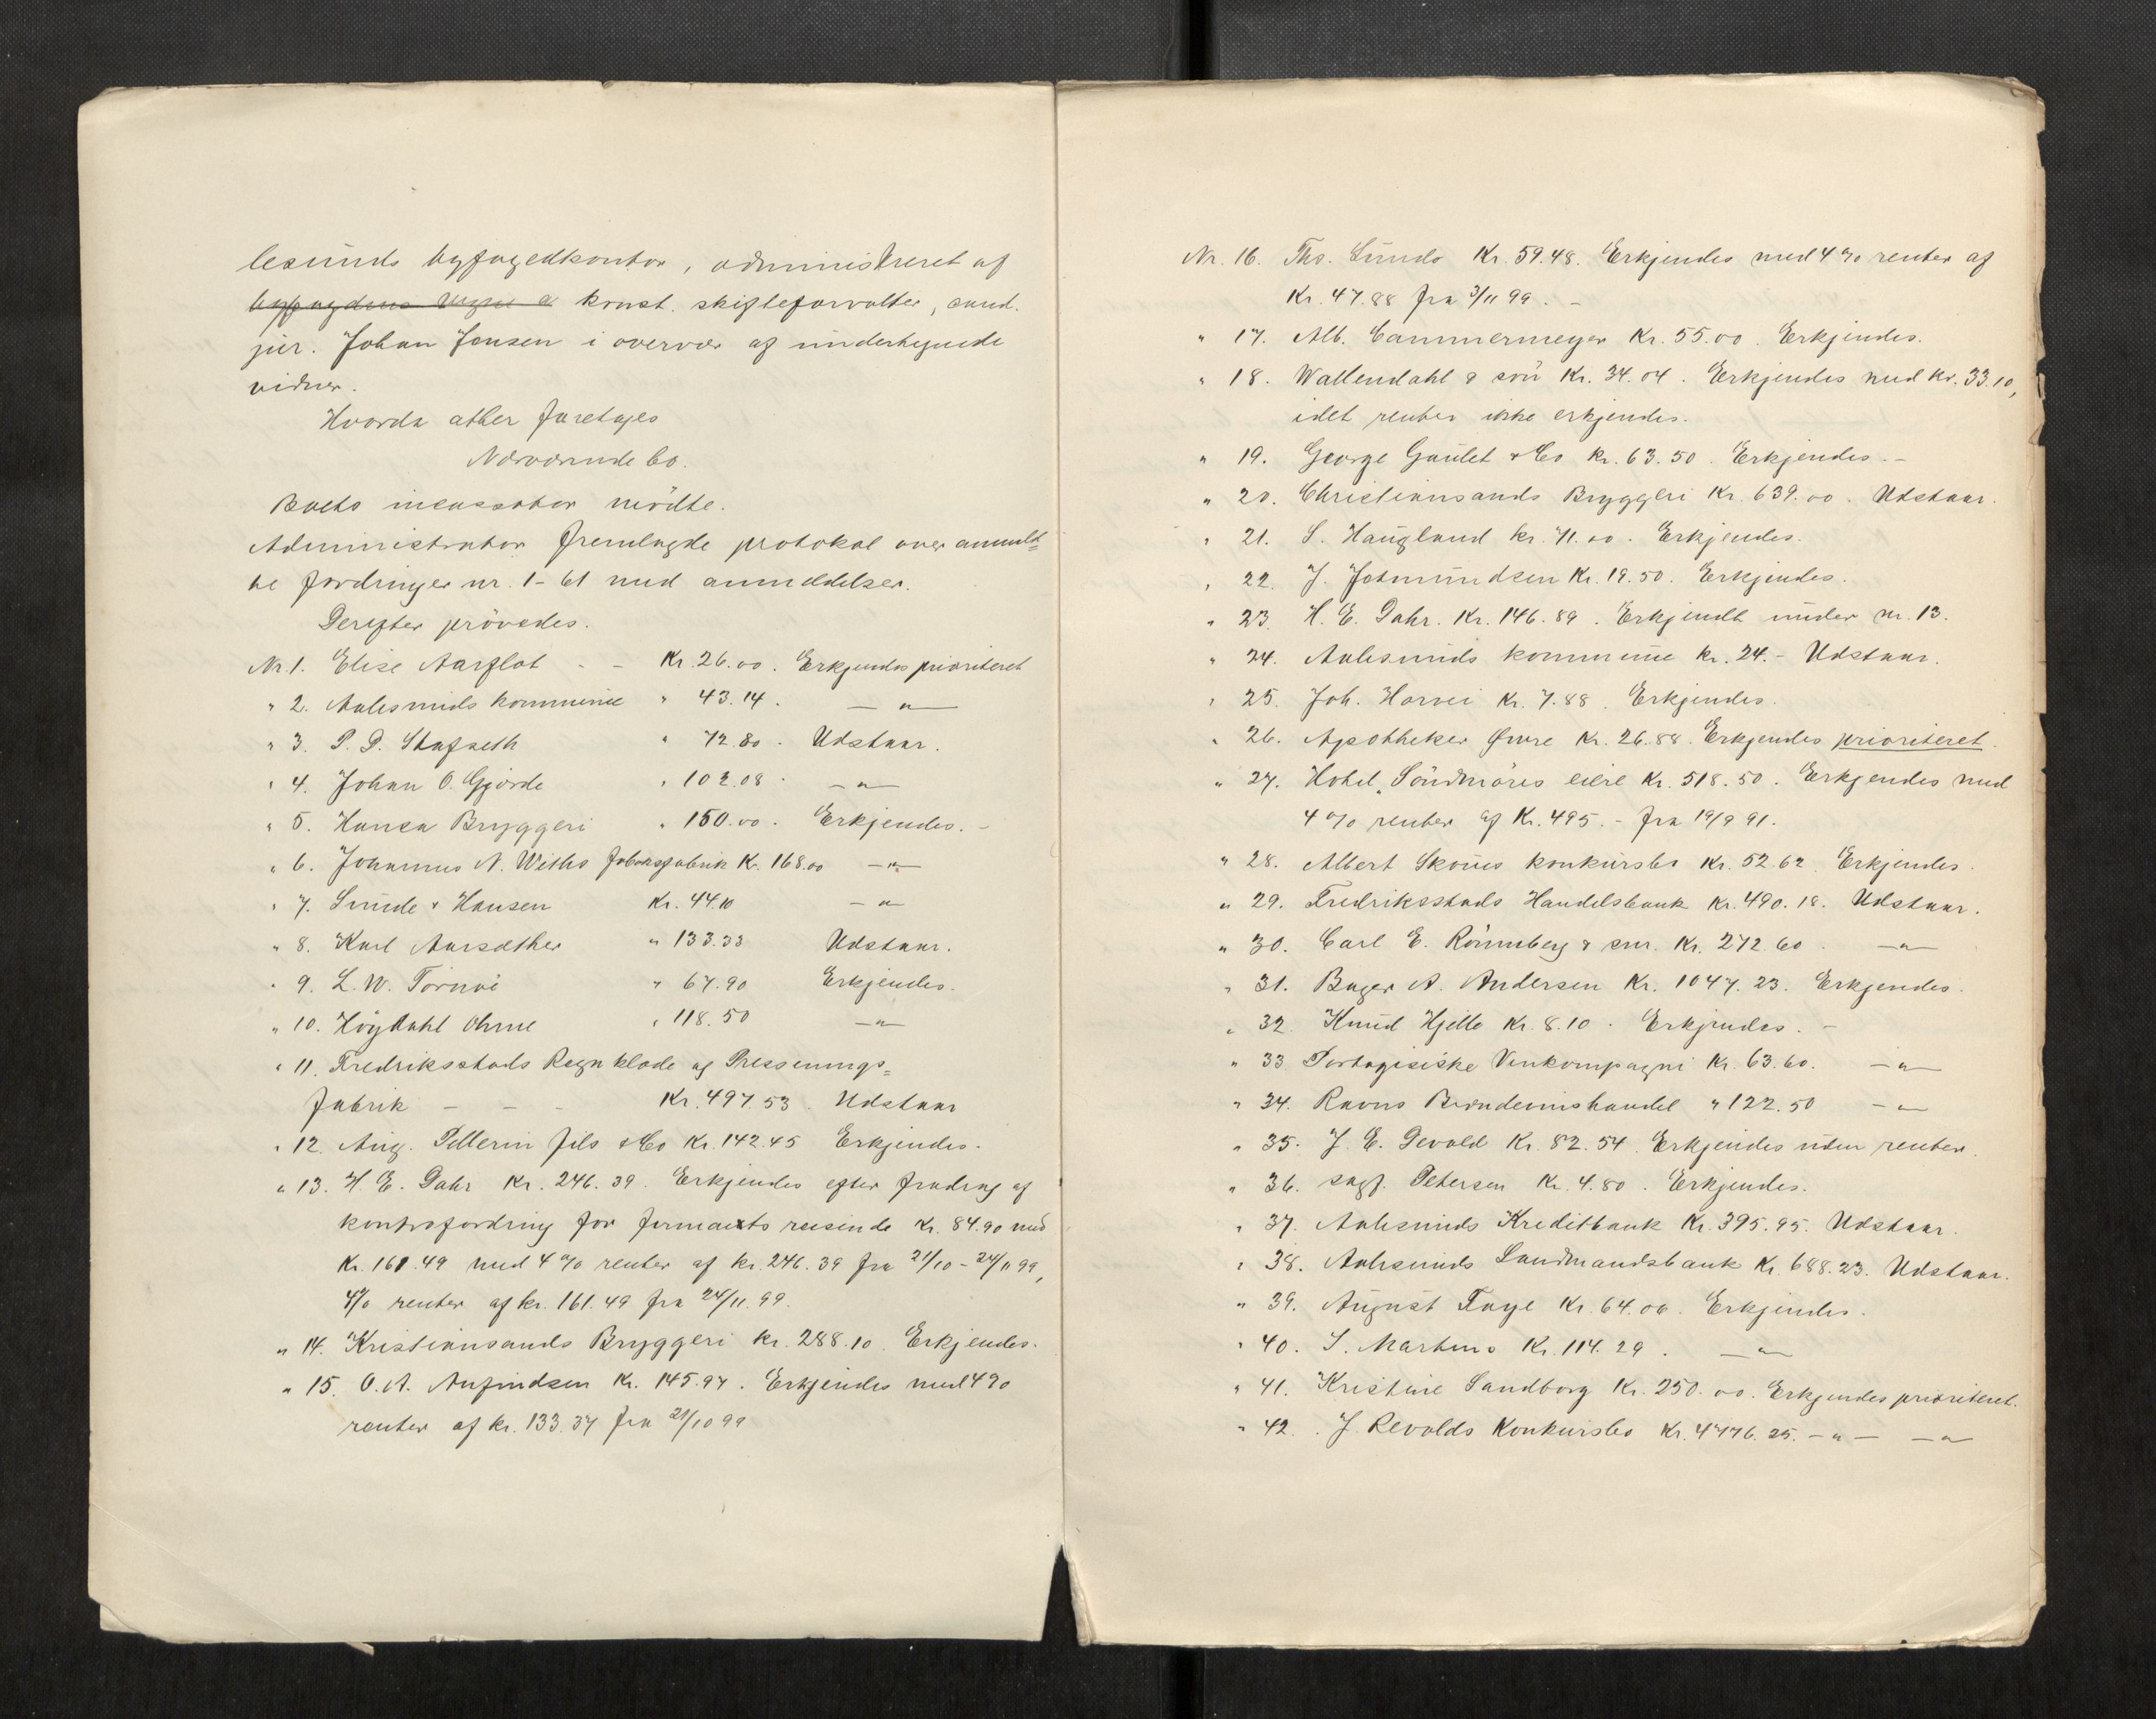 lesunds byfogedkontor, administreret af
byfogdens konst. skifteforvalter, cand.
jur. Johan Jensen i overvær af undertegnede
vidner.
Hvorda atter foretages
Nærværende bo.
Boets incassator mödte.
Administrator fremlagde protokol over anmeld=
te fordringer nr. 1-61 med anmeldelser.
Derefter prövedes.
Nr 1. Elise Aarflot - - Kr. 26.00. Erkjendes prioriteret
" 2. Aalesunds kommune " 43.14. — " —
" 3. P. D. Stafseth " 72.80. Udstaar.
" 4. Johan O. Gjörde " 102.08. — " —
" 5. Hansa Bryggeri " 150.00. Erkjendes. -
" 6. Johannes N. Withs Tobaksfabrik Kr. 168.00 — " —
" 7. Sunde & Hansen Kr. 44.10 — " —
" 8. Karl Aarsæther " 133.33 Udstaar.
" 9. L. W. Törnöe " 67.90 Erkjendes.
" 10. Höydahl Ohme " 118.50 — " —
" 11. Fredriksstads Regnklæde og Pressennings=
fabrik - - - Kr. 497.53. Udstaar
" 12. Aug. Pellerin fils & Co Kr. 142.45 Erkjendes.
" 13. H. E. Dahr Kr. 246.39. Erkjendes efter fradrag af
kontrafordring for firmaets reisende Kr. 84.90 med
Kr. 161.49 med 4% renter af kr. 246.39 fra 21/10 - 24/11 99,
4% renter af kr. 161.49 fra 24/11. 99.
" 14. Kristiansands Bryggeri kr. 288.10. Erkjendes.
" 15. O. A. Anfindsen Kr. 145.97. Erkjendes med 4%
renter af kr. 133.37 fra 21/10 99
Nr. 16. Ths. Sunds Kr. 59.48. Erkjendes med 4% renter af
Kr. 47.88 fra 3/11 99. -
" 17. Alb. Cammermeyer Kr. 55.00. Erkjendes.
" 18. Wallendahl & sön Kr. 34.04. Erkjendes med kr. 33.10,
idet renter ikke erkjendes.
" 19. George Goulet & Co Kr. 63.50. Erkjendes. -
" 20. Christiansands Bryggeri Kr. 639.00. Udstaar.
" 21. S. Haugland kr. 71.00. Erkjendes.
" 22. J. Jetmundsen Kr. 19.50. Erkjendes.
" 23. H. E. Dahr. Kr. 146.89. Erkjendt under nr. 13.
" 24. Aalesunds kommune kr. 24.- Udstaar.
" 25. Joh. Horvei Kr. 7.88. Erkjendes.
" 26. Apotheker Øwre Kr. 26.88. Erkjendes prioriteret.
" 27. Hotel Söndmöres eiere Kr. 518.50. Erkjendes med
4% renter af Kr. 495.- fra 19/9 91.
" 28. Albert Skoues konkursbo Kr. 52.62. Erkjendes.
" 29. Fredriksstads Handelsbank Kr. 490.18. Udstaar.
" 30. Carl E. Rönneberg & sön. Kr. 272.60. — " —
" 31. Bager A. Andersen Kr. 1047.23. Erkjendes.
" 32. Knud Hjelle Kr. 8.10. Erkjendes. -
" 33. Portugisiske Vinkompagni Kr. 63.60. — " —
" 34. Ravns Brændevinshandel " 122.50 — " —
" 35. J. E. Devold Kr. 82.54. Erkjendes uden renter.
" 36. sagf. Petersen Kr. 4.80. Erkjendes.
" 37. Aalesunds Kreditbank Kr. 395.95. Udstaar.
" 38. Aalesunds Landmandsbank Kr. 688.23. Udstaar.
" 39. August Faye Kr. 64.00. Erkjendes.
" 40. S. Martens Kr. 114.29. — " —
" 41. Kristine Sandborg Kr. 250.00. Erkjendes prioriteret.
" 42. J. Revolds Konkursbo Kr. 4776.25. — " — — " —